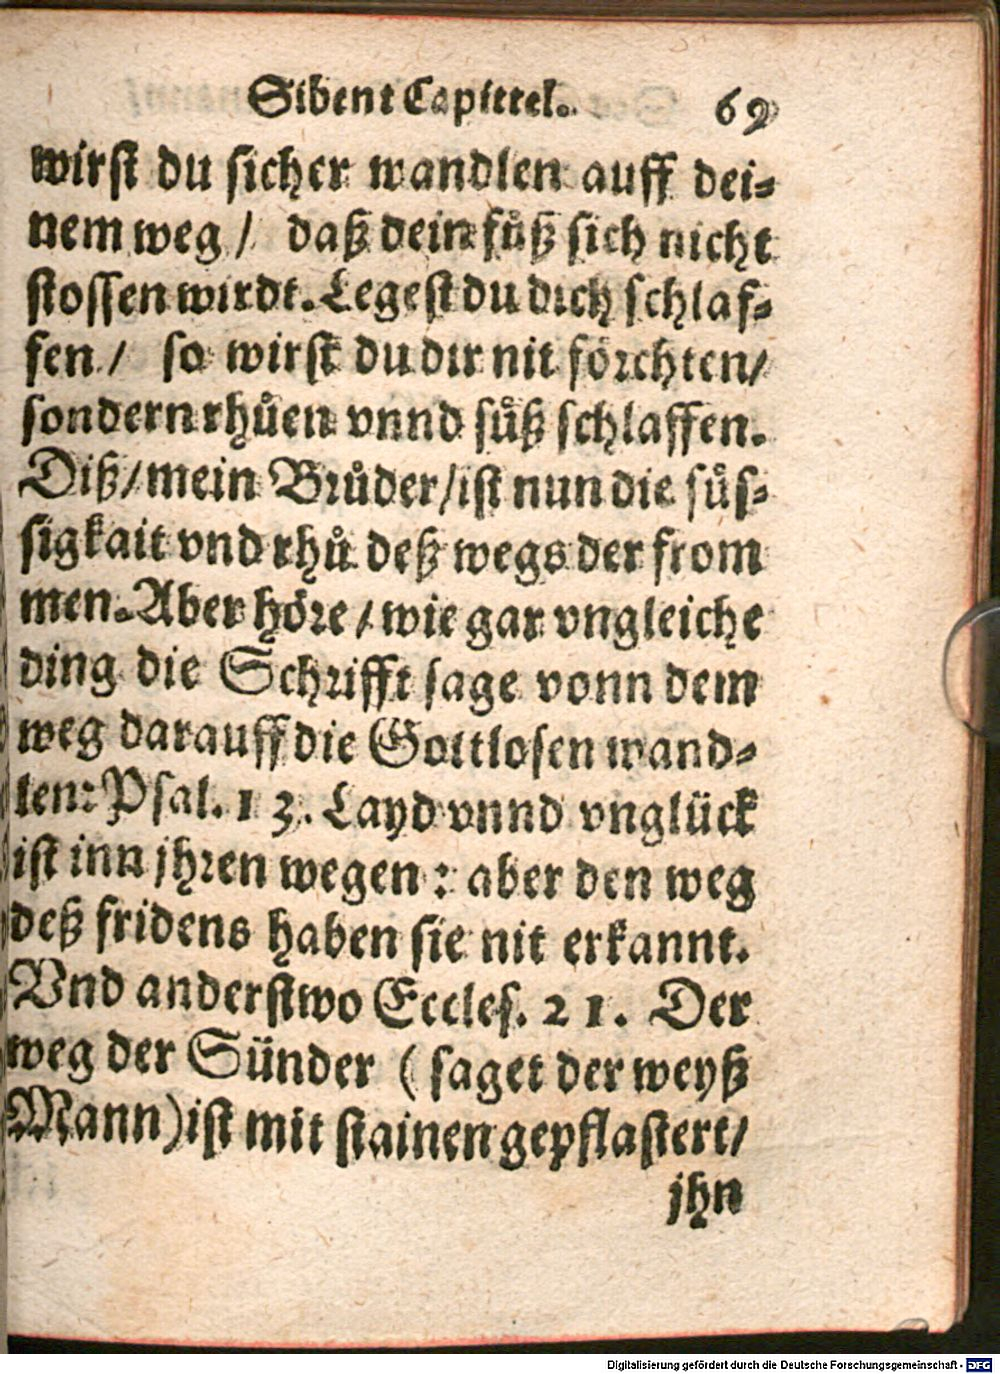 Sibent Capittel. 69
wirst du sicher wandlen auff dei⸗
nem weg / daß dein fůß sich nicht
stossen wirdt. Legest du dich schlaf⸗
fen / so wirst du dir nit förchten/
sondern rhůen vnnd sůß schlaffen.
Diß/mein Brůder/ist nun die sůs⸗
sigkait vnd rhů deß wegs der from
men. Aber höre / wie gar vngleiche
ding die Schrifft sage vonn dem
weg darauff die Gottlosen wand⸗
len: Psal. 13. Layd vnnd vnglück
ist inn jhren wegen : aber den weg
deß fridens haben sie nit erkannt.
Vnd anderstwo Eccles. 21. Der
weg der Sünder ( saget der weyß
Mann) ist mit stainen gepflastert/
jhn
Digitalisierung gefördert durch die Deutsche Forschungsgemeinschaft - DFG